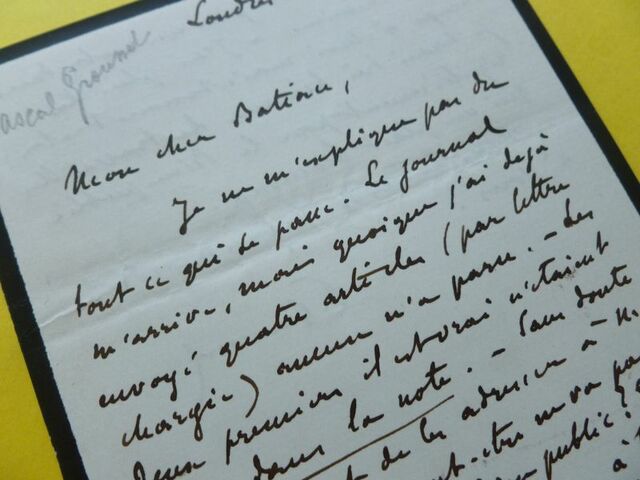 Londres
Pascal Grousset
Mon cher Batiau,
Je ne m'explique pas du
tout ce qui se passe. Le journal
m'arrive, mais quoique j'ai dejà
envoyé quatre articles (par lettre
chargée) aucun n'a paru. – Les
deux premiers il est vrai n'étaient
dans la note. – Sans doute
de les adresser à
peut-être ne va pas
public ?
à